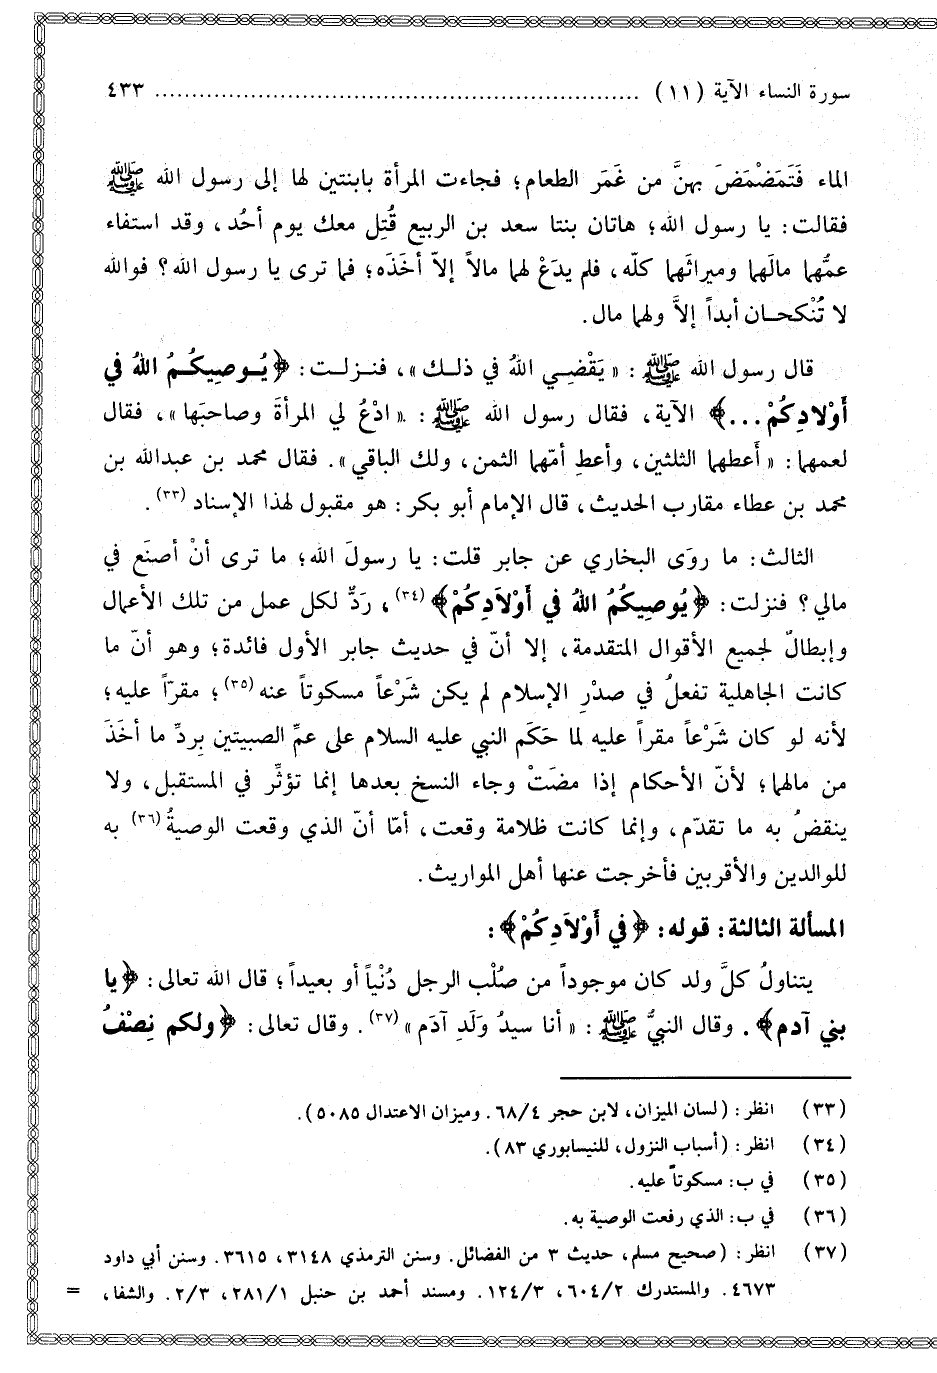 سورة النساء الآية (١١) ................................................................ ٤٣٣
الماء فَتَمَضْمَضَ بهنَّ من غَمَر الطعام؛ فجاءت المرأة بابنتين لها إلى رسول الله ﷺ
فقالت: يا رسول الله؛ هاتان بنتا سعد بن الربيع قُتِل معك يوم أحُد، وقد استفاء
عمُّهما مالَهما وميراثَهما كلّه، فلم يدَعْ لهما مالاً إلاّ أخَذَه؛ فما ترى يا رسول الله؟ فوالله
لا تُنْكحـان أبداً إلاَّ ولهما مال.
قال رسول الله ﷺ: «يَقْضِـي اللهُ في ذلـك»، فنـزلـت: ﴿يُـوصِيكُـمُ اللهُ في
أَوْلادِكُمْ...﴾ الآية، فقال رسول الله ﷺ: «ادْعُ لي المرأةَ وصاحبَها»، فقال
لعمهما: «أَعطهما الثلثين، وأعطِ أمّهما الثمن، ولك الباقي». فقال محمد بن عبدالله بن
محمد بن عطاء مقارب الحديث، قال الإمام أبو بكر: هو مقبول لهذا الإسناد (٣٣).
الثالث: ما روَى البخاري عن جابر قلت: يا رسولَ الله؛ ما ترى أنْ أصنَع في
مالي؟ فنزلت: ﴿يُوصِيكُمُ اللهُ في أَوْلاَدِكُمْ﴾ (٣٤)، رَدٍّ لكل عمل من تلك الأعمال
وإبطالٌ لجميع الأقوال المتقدمة، إلا أنّ في حديث جابر الأول فائدة؛ وهو أنّ ما
كانت الجاهلية تفعلُ في صدْرِ الإسلام لم يكن شَرْعاً مسكوتاً عنه (٣٥)؛ مقرّاً عليه؛
لأنه لو كان شَرْعاً مقراً عليه لما حَكَم النبي عليه السلام على عمِّ الصبيتين بِردِّ ما أخَذَ
من مالهما؛ لأنّ الأحكام إذا مضَتْ وجاء النسخ بعدها إنما تؤثِّر في المستقبل، ولا
ينقضُ به ما تقدّم، وإنما كانت ظلامة وقعت، أمّا أنّ الذي وقعت الوصيةُ (٣٦) به
للوالدين والأقربين فأخرجت عنها أهل المواريث.
المسألة الثالثة: قوله: ﴿في أَوْلاَدِكُمْ﴾:
يتناولُ كلَّ ولد كان موجوداً من صُلْب الرجل دُنْيَاً أو بعيداً؛ قال الله تعالى: ﴿يا
بني آدم﴾. وقال النبيُّ ﷺ: «أنا سيدُ وَلَدِ آدَم» (٣٧). وقال تعالى: ﴿ولكم نِصْفُ
(٣٣) انظر: (لسان الميزان، لابن حجر ٦٨/٤. وميزان الاعتدال ٥٠٨٥).
(٣٤) انظر: (أسباب النزول، للنيسابوري ٨٣).
(٣٥) في ب: مسكوتاً عليه.
(٣٦) في ب: الذي رفعت الوصية به.
(٣٧) انظر: (صحيح مسلم، حديث ٣ من الفضائل. وسنن الترمذي ٣١٤٨، ٣٦١٥. وسنن أبي داود
٤٦٧٣. والمستدرك ٦٠٤/٢، ١٢٤/٣. ومسند أحمد بن حنبل ٢٨١/١، ٢/٣. والشفا، =